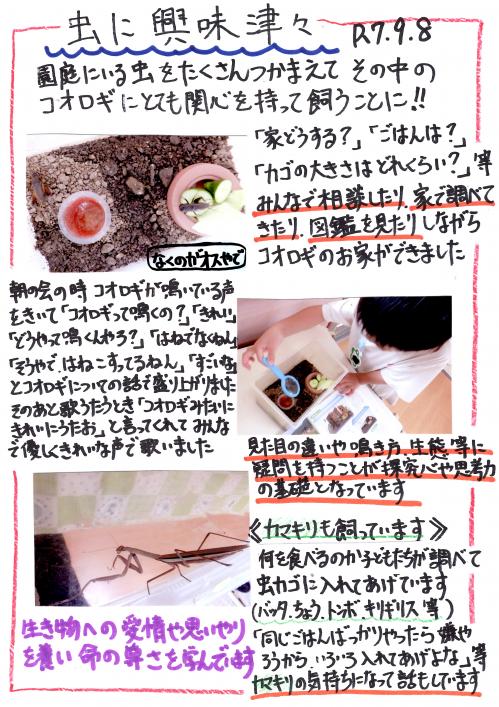 虫に興味津々 R7.9.8
園庭にいる虫をたくさんつかまえて その中の
コオロギにとても関心を持って飼うことに!!
「家どうする?」「ごはんは?」
「カゴの大きさはどれくらい?」等
みんなで相談したり、家で調べて
きたり、図鑑を見たりしながら
コオロギのお家ができました
なくのがオスやで
朝の会の時 コオロギが鳴いている声
をきいて「コオロギって鳴くの?」「きれい」
「どうやって鳴くんやろ?」「はねでなくねん」
「そうやで、はねこすってるねん」「すごいな」
とコオロギについての話で盛り上がりました
そのあと歌うたうとき「コオロギみたいに
きれいにうたお」と言ってくれて みんな
で優しくきれいな声で歌いました
見た目の違いや鳴き方、生態等に
疑問を持つことが探究心や思考力
の基礎となっています
《カマキリも飼っています》
何を食べるのか子どもたちが調べて
虫カゴに入れてあげています
(バッタ、ちょう、トンボ、キリギリス 等)
「同じごはんばっかりやったら 嫌や
ろうから、いろいろ入れてあげよな」等
カマキリの気持ちになって話もしています
生き物への愛情や思いやり
を養い 命の尊さを学んでいます